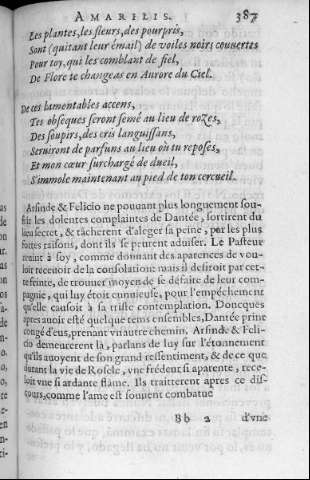 AMARILIS. 387
Les plantes, les fleurs, des pourpris,
Sont (quitant leur émail) de voiles noirs couvertes
Pour toy, qui les comblant de fiel,
De Flore te changeas en Aurore du Ciel.
De ces lamentables accens,
Tes obséques seront semé au lieu de rozes,
Des soupirs, des cris languissans,
Seruirent de parfuns au lieu où tu reposes,
Et mon cœur surchargé de dueil,
S'immole maintenant au pied de ton cercueil.
Arsinde & Felicio ne pouuant plus longuement souf-
frir les dolentes complaintes de Dantée, sortirent du
lieu secret, & tâcherent d'aleger sa peine, par les plus
fortes raisons, dont ils se peurent aduiser. Le Pasteur
reuint à soy, comme donnant des aparences de vou-
loir receuoir de la consolation: mais il desiroit par cet-
te feinte, de trouuer moyen de se défaire de leur com-
pagnie, qui luy étoit ennuieuse, pour l'empéchement
qu'elle causoit à sa triste contemplation. Doncques
apres auoir esté quelque tems ensembles, Dantée prine
congé d'eus, prenant vn autre chemin. Arsinde & Feli-
cio demeurerent là, parlans de luy sur l'étonnement
qu'ils auoyent de son grand ressentiment, & de ce que
durant la vie de Rosele, vne frédeur si aparente, rece-
loit vne si ardante flâme. Ils traitterent apres ce dis-
cours, comme l'ame est souuent combatuë
Bb 2 d'vne